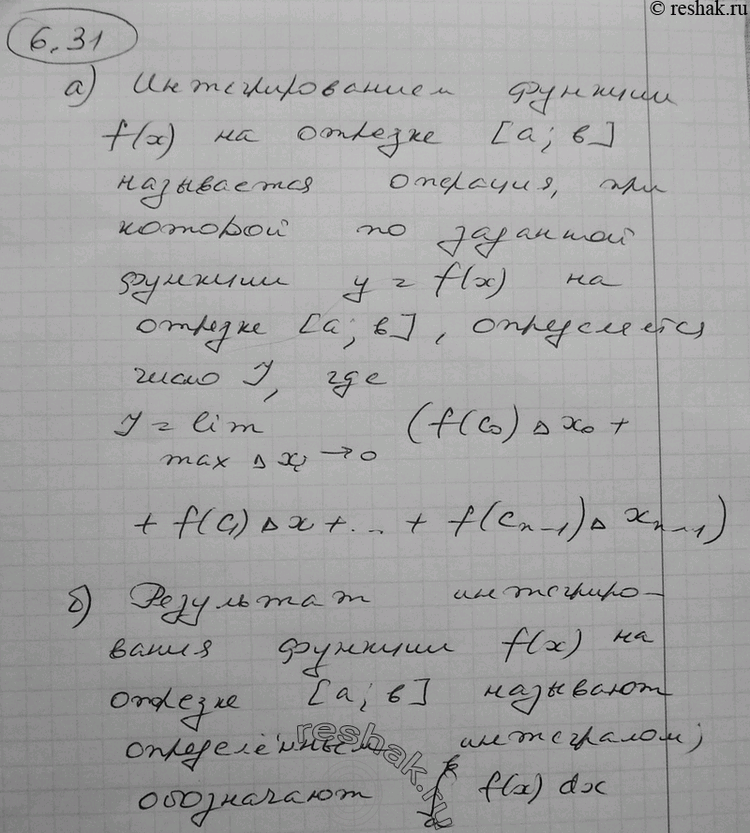 © reshak.ru
6.31
а) Интегрированием функции
f(x) на отрезке [a; в]
называется операция, при
которой по заданной
функции y = f(x) на
отрезке [a; в], определяется
число J, где
J = lim (f(c₀) Δx₀ +
max Δxᵢ → 0
+ f(c₁) Δx + ... + f(cₙ₋₁) Δxₙ₋₁)
б) Результат интегриро-
вания функции f(x) на
отрезке [a; в] называют
определённым интегралом;
обозначают ∫ₐᵇ f(x) dx
reshak.ru